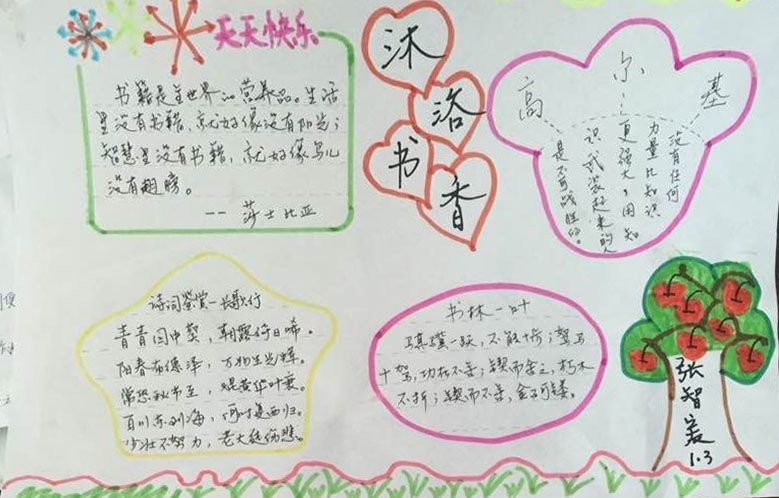 天天快乐
书籍是全世界的营养品。生活
里没有书籍,就好像没有阳光;
智慧里没有书籍,就好像鸟儿
没有翅膀。
-- 莎士比亚
沐
浴
书
香
高尔基
没有任何
力量比知识
更强大,用知
识武装起来的人
是不可战胜的。
诗词鉴赏一长歌行
青青园中葵,朝露待日晞。
阳春布德泽,万物生光辉。
常恐秋节至,焜黄华叶衰。
百川东到海,何时复西归。
少壮不努力,老大徒伤悲。
书林一叶
骐骥一跃,不能十步;驽马
十驾,功在不舍;锲而舍之,朽木
不折;锲而不舍,金石可镂。
张智
1.3